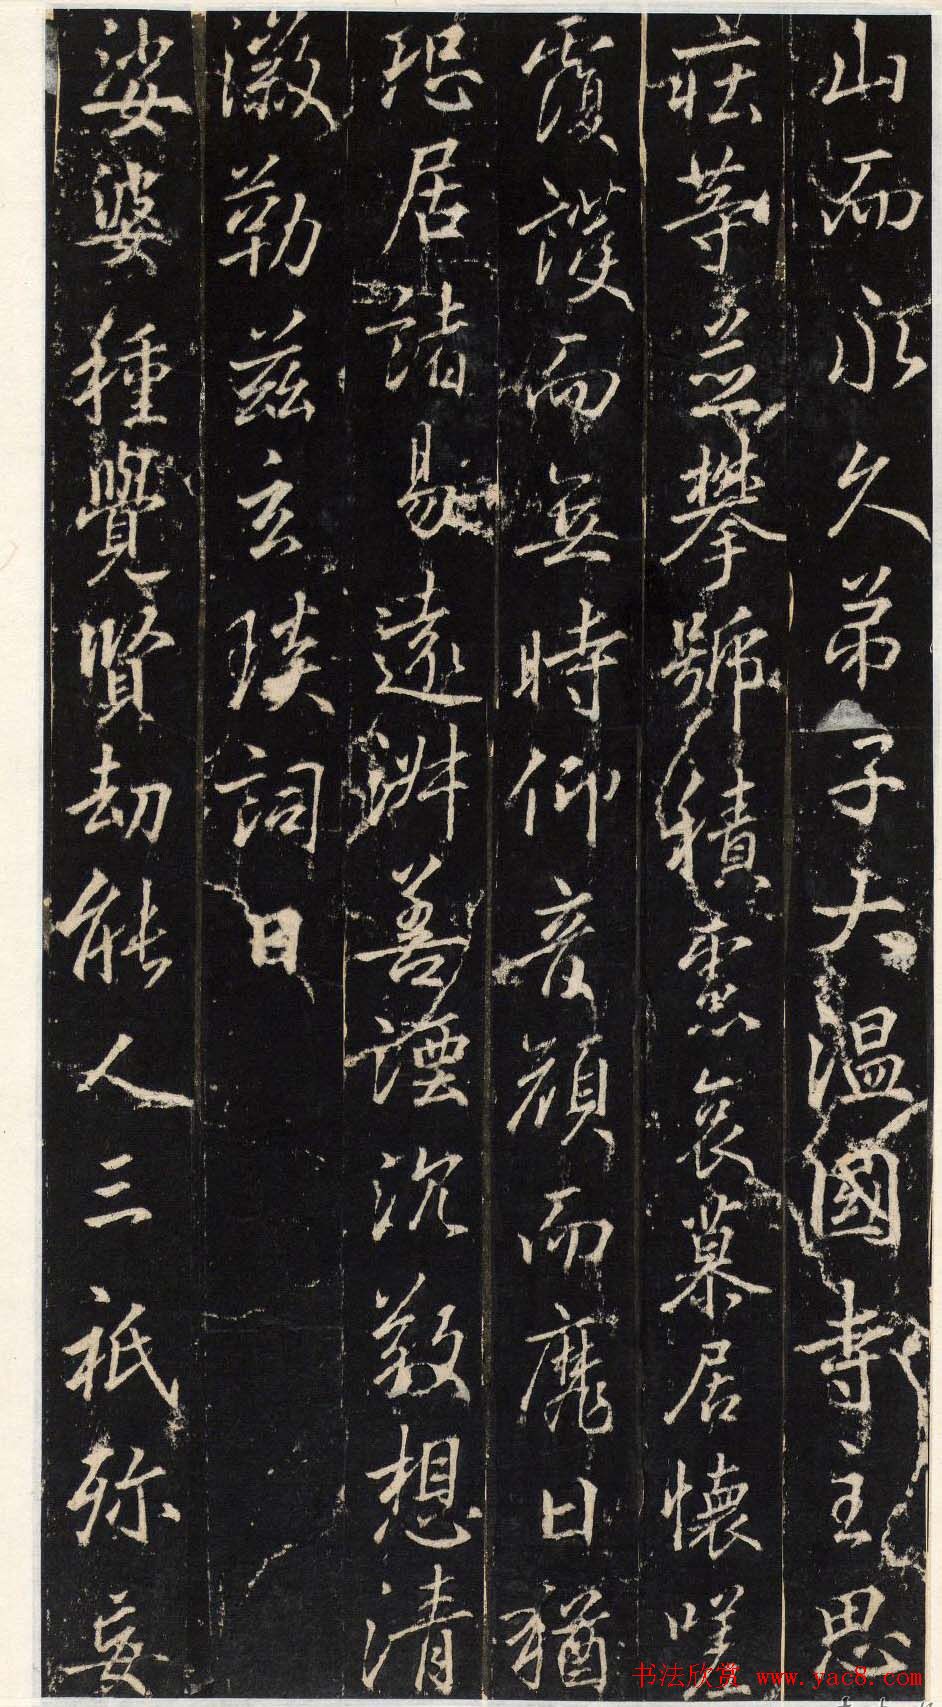 山而永久弟子大温國寺主思
莊等並攀號積慮哀慕居懷嗟
覆護而無時仰音顔而靡日猶
恐居諸易遠淑善湮沉敬想清
徽勒兹玄琰詞曰
娑婆種覺賢劫能人三祇弥妄
书法欣赏 www.yac8.com